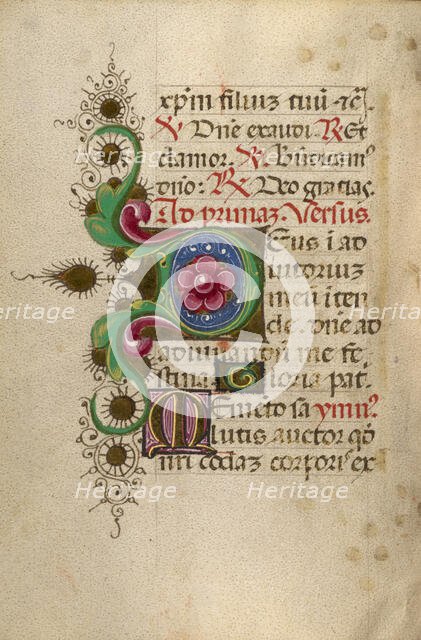 xp̄m filiuz tuū ⁊c̄.
V Dn̄e exaudi. R Et
clamor. V Bn̄dicam9
dno: R Deo gracias.
Ad primaz. Versus.
Deus i ad
iutoriuz
meū iten
de. Dn̄e ad
adiuuandū me fe
stina Gloria pat̄.
Memēto sa ymn9.
lutis auctor qđ
n̄ri q̄daz corpori9 ex
Heritage
Heritage
Heritage
Heritage
Heritage
Heritage
Heritage